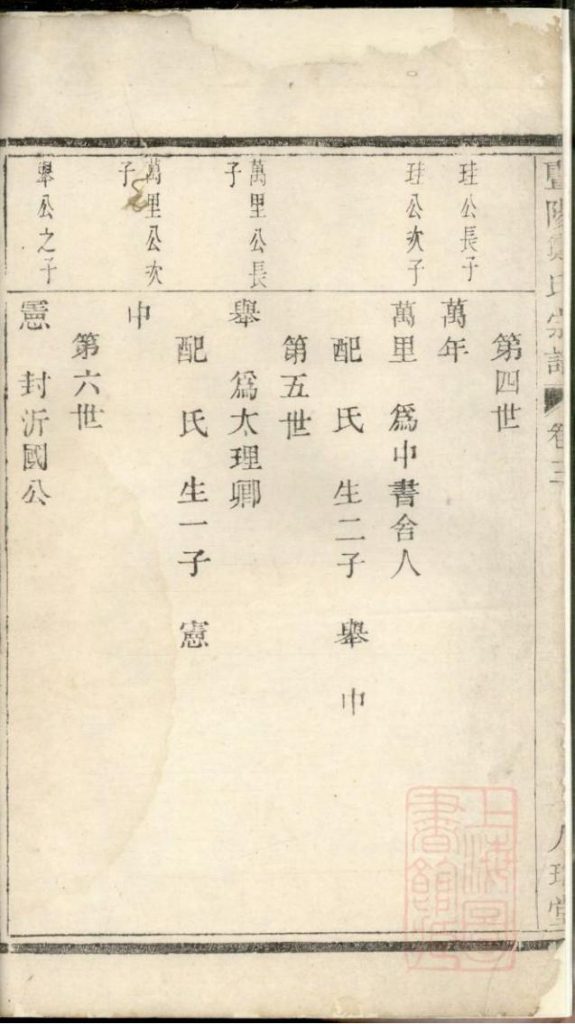 宗譜
卷三
第四世
珪公長子
萬年
珪公次子
萬里 爲中書舍人
配 氏 生二子 舉 中
第五世
萬里公長子
舉 爲太理卿
配 氏 生一子 憲
萬里公次子
中
第六世
舉公之子
憲 封沂國公
上海圖書館藏